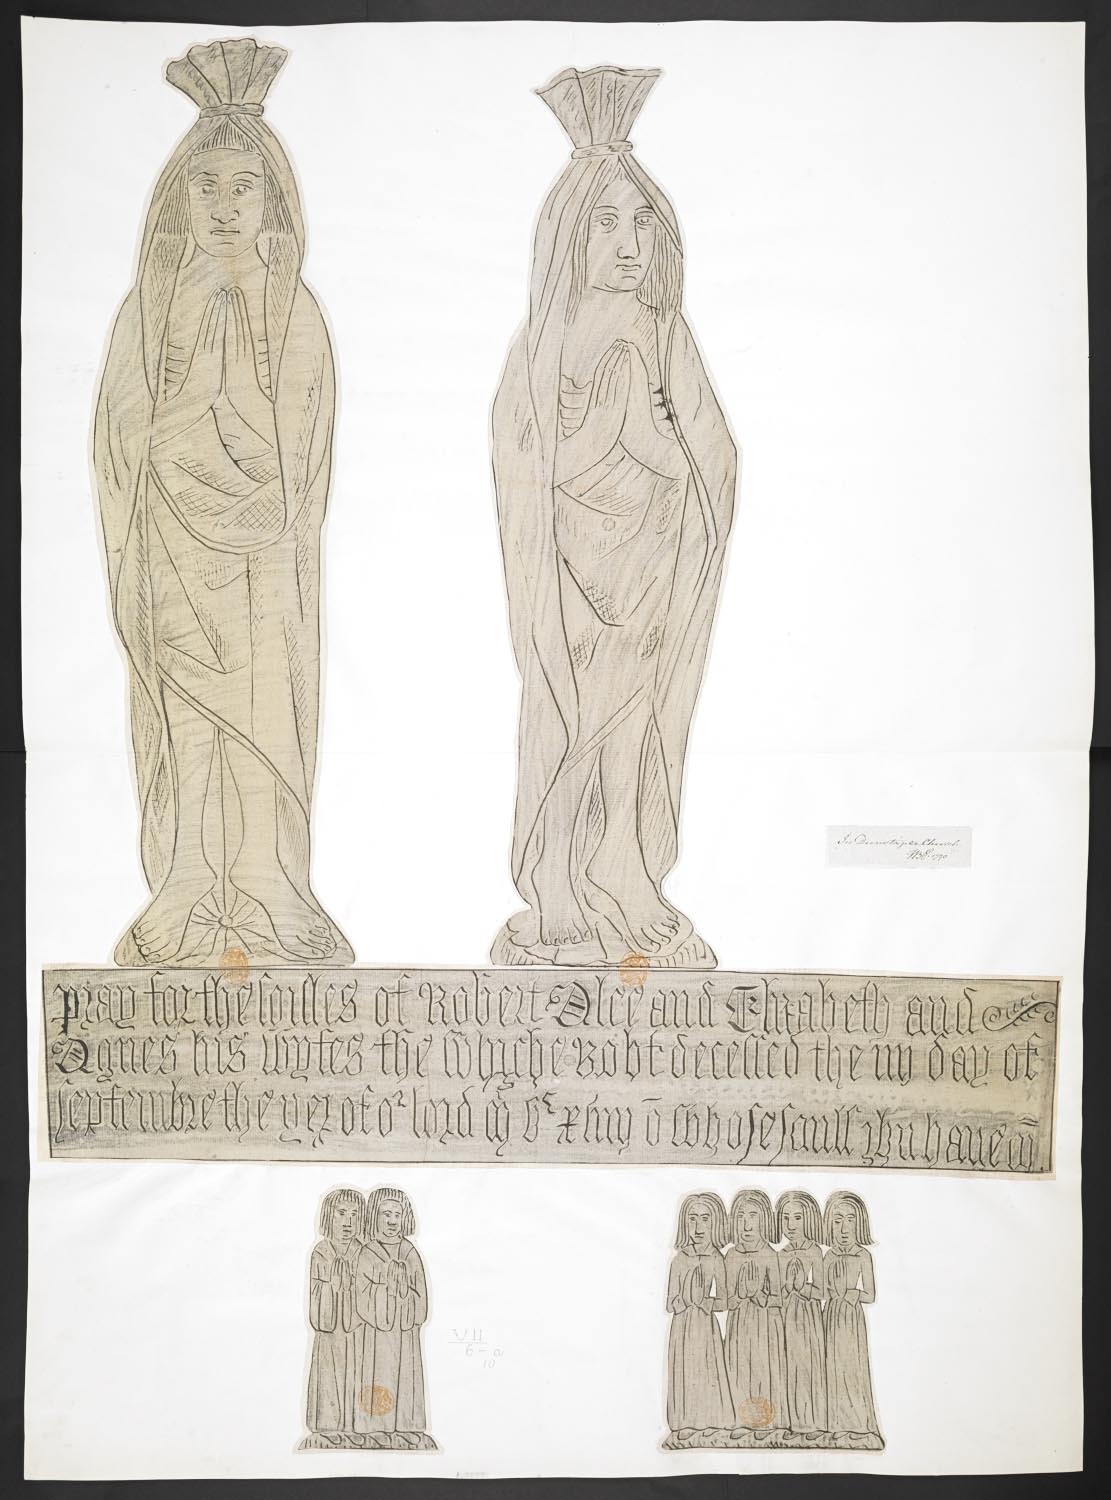 In Dunstaple Church
1790
Pray for the soulles of Robert Alee and Elizabeth and
Agnes his wyfes the Whyche Robt decessed the iiij day of
septembre the yer of or lord
whose saull Jhu have
VII
6-a
10